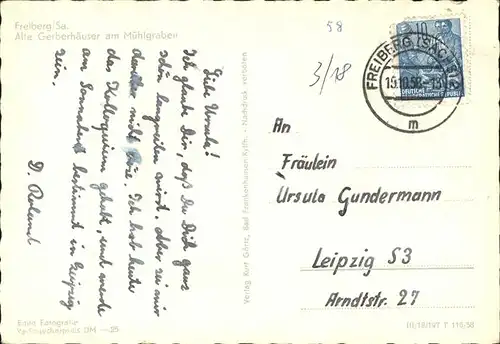 Freiberg/Sa.
Alte Gerberhäuser am Mühlgraben
Liebe Ursula!
Ich glaube Dir, daß Du Dich ganz
schön langweilen wirst, aber sei mir
deshalb nicht böse. Ich hab heute
das Kolloquium gehabt, und werde
am Sonnabend bestimmt in Leipzig
sein.
D. Roland
Echte Fotografie
Verlag Kurt Görtz, Bad Frankenhausen/Kyffh. - Nachdruck verboten
58
3/18
10
FREIBERG (SACHS)
15.10.58
m
DEUTSCHE
DEMOKRATISCHE REPUBLIK
An
Fräulein
Ursula Gundermann
Leipzig S3
Arndtstr. 27
III/18/197 T 110-58